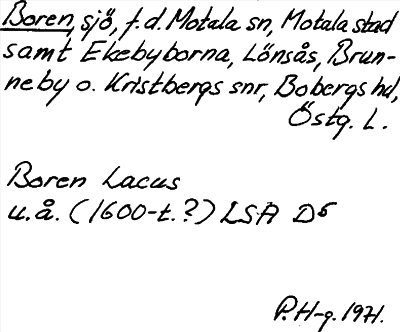 Boren, sjö, f.d. Motala sn, Motala stad
samt Ekebyborna, Lönsås, Brun-
neby o. Kristbergs snr, Bobergs hd,
Östg. L.
Boren Lacus
u.å. (1600-t.?) LSA D5
P.H-g. 1971.